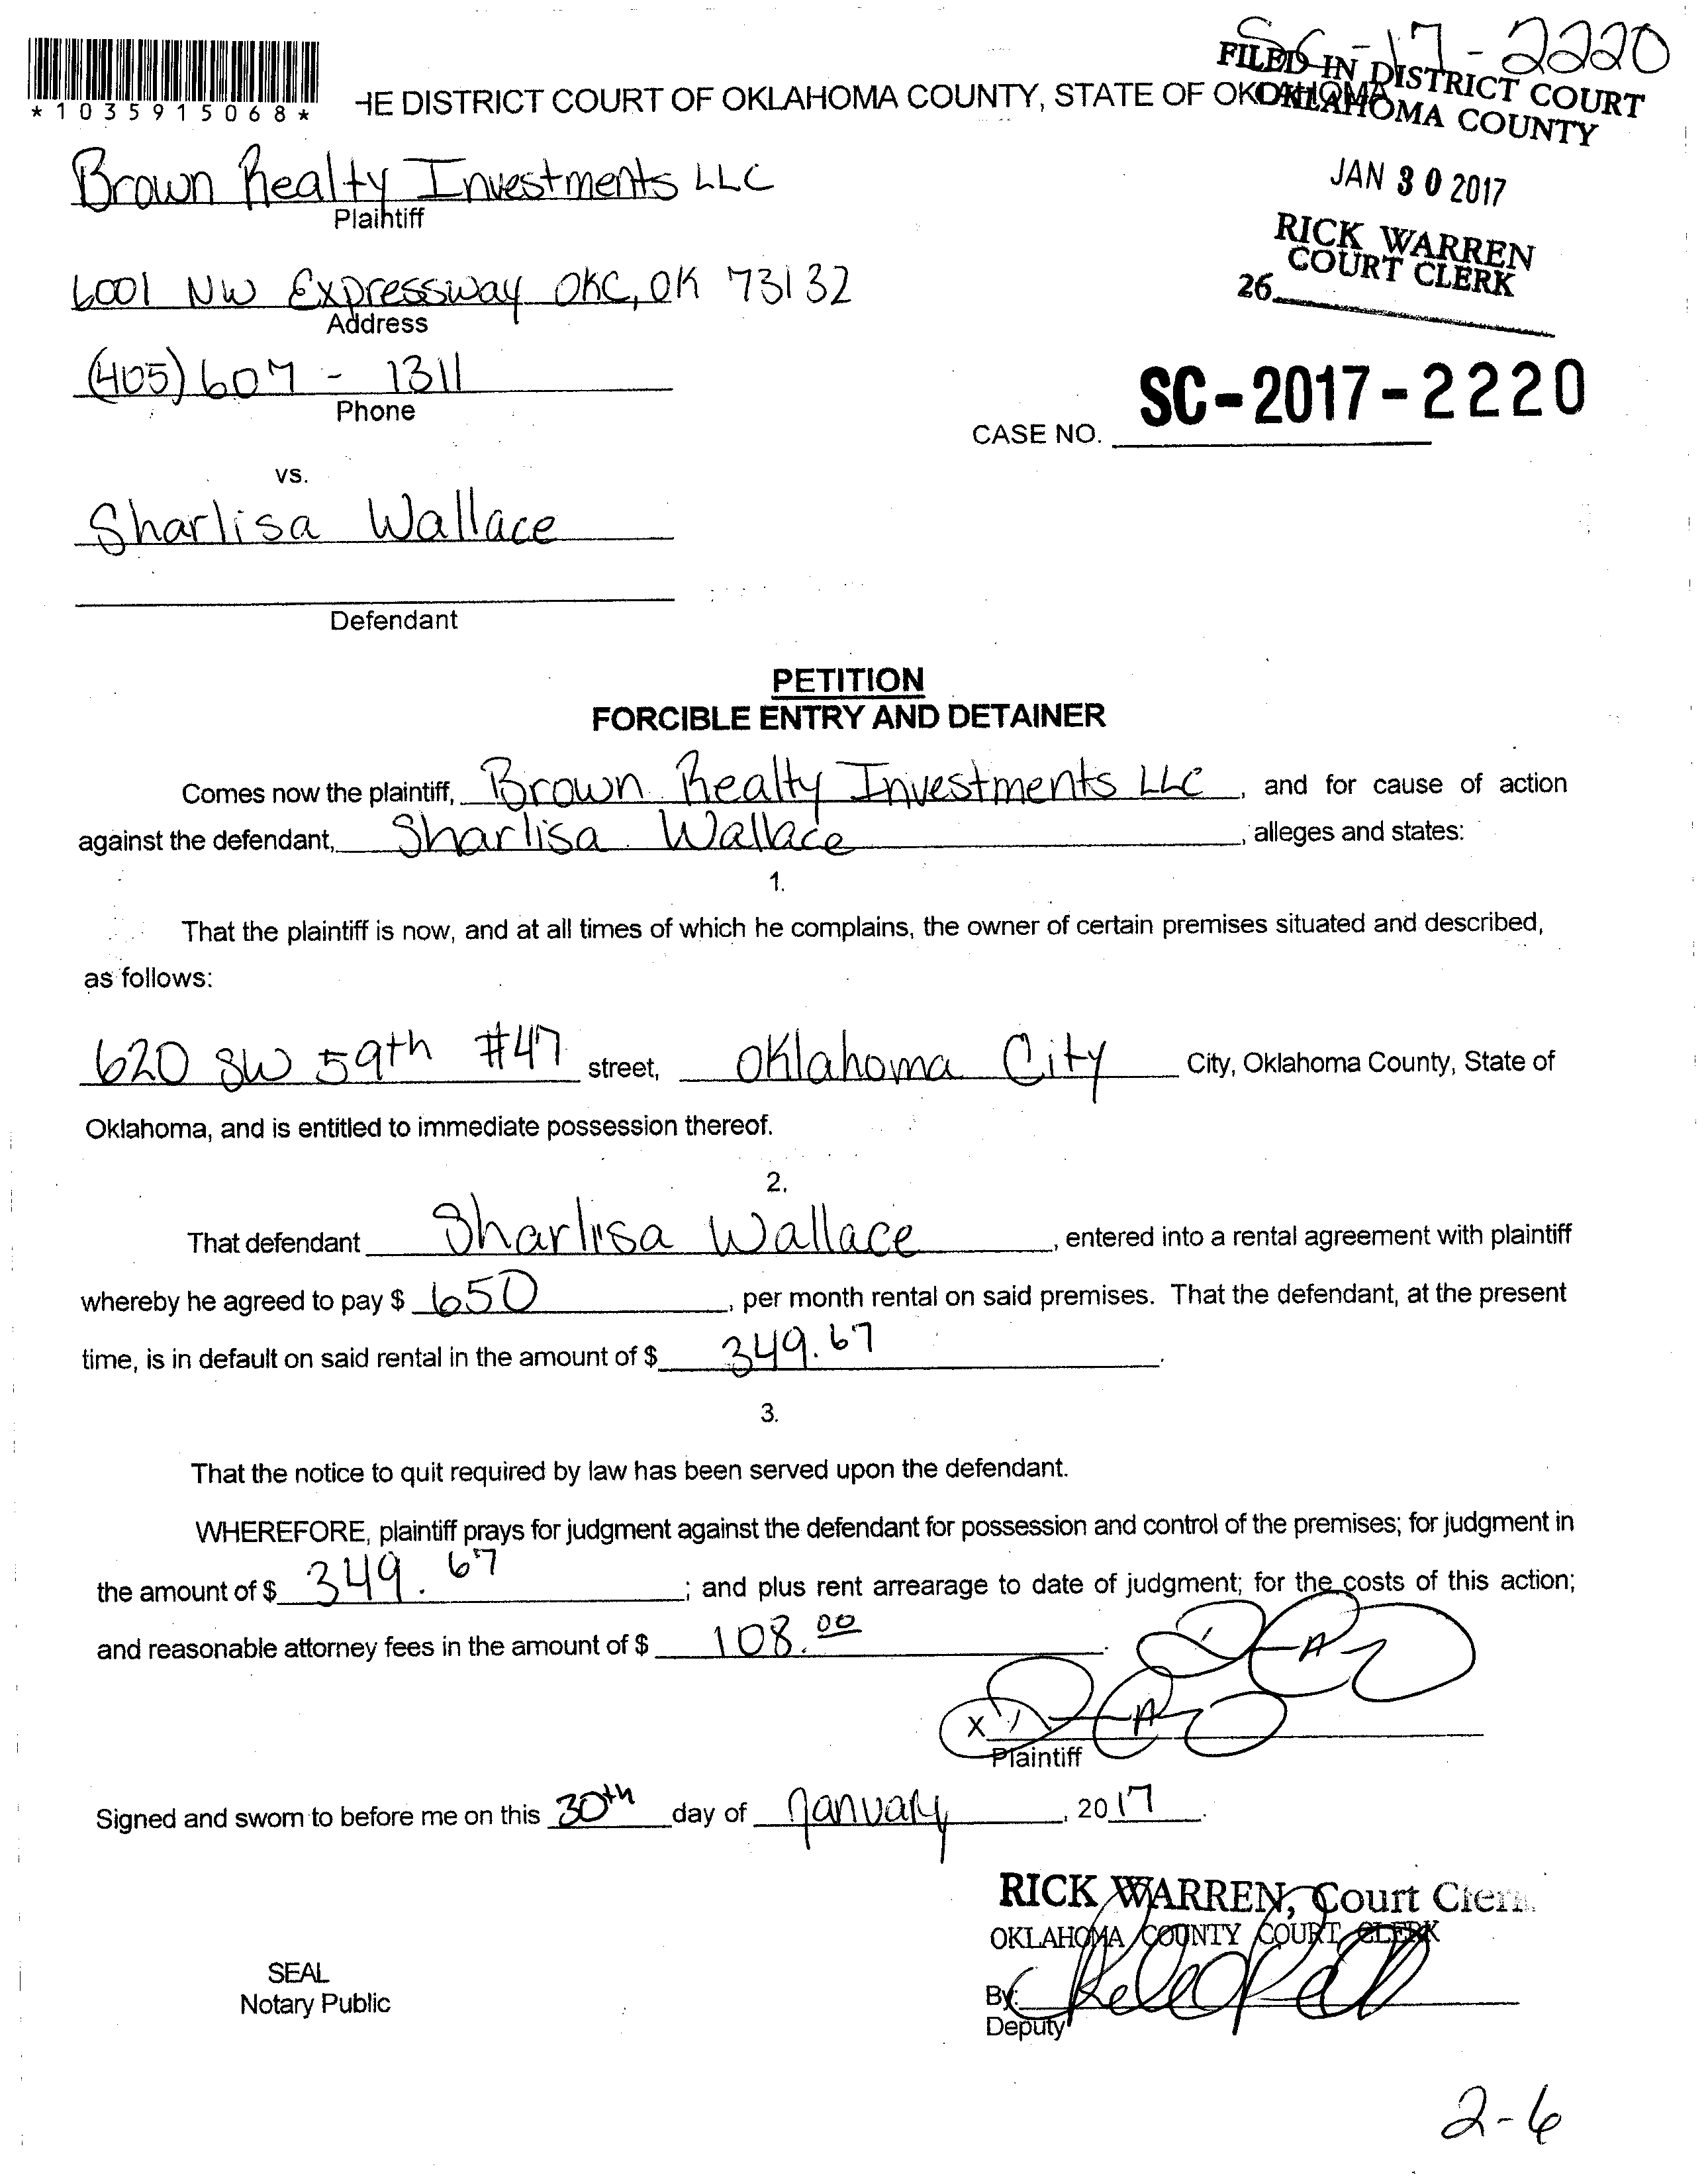 SC-17-2220
*1035915068*
HE DISTRICT COURT OF OKLAHOMA COUNTY, STATE OF OKLAHOMA
FILED IN DISTRICT COURT
OKLAHOMA COUNTY
JAN 30 2017
RICK WARREN
COURT CLERK
26
Brown Realty Investments LLC
Plaintiff
6001 NW Expressway OKC, OK 73132
Address
(405) 607 - 1311
Phone
SC-2017-2220
CASE NO.
vs.
Sharlisa Wallace
Defendant
PETITION
FORCIBLE ENTRY AND DETAINER
Comes now the plaintiff, Brown Realty Investments LLC, and for cause of action
against the defendant, Sharlisa Wallace, alleges and states:
1.
That the plaintiff is now, and at all times of which he complains, the owner of certain premises situated and described,
as follows:
620 SW 59th #47 street, Oklahoma City City, Oklahoma County, State of
Oklahoma, and is entitled to immediate possession thereof.
2.
That defendant Sharlisa Wallace, entered into a rental agreement with plaintiff
whereby he agreed to pay $ 650, per month rental on said premises. That the defendant, at the present
time, is in default on said rental in the amount of $ 349.67.
3.
That the notice to quit required by law has been served upon the defendant.
WHEREFORE, plaintiff prays for judgment against the defendant for possession and control of the premises; for judgment in
the amount of $ 349.67; and plus rent arrearage to date of judgment; for the costs of this action;
and reasonable attorney fees in the amount of $ 108.00.
X
Plaintiff
Signed and sworn to before me on this 30th day of January, 2017.
RICK WARREN, Court Clerk
OKLAHOMA COUNTY COURT CLERK
SEAL
Notary Public
By:
Deputy
2-6